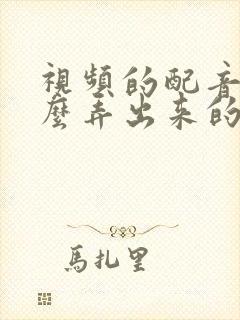 視頻的配音
麼弄出來的
馬扎里